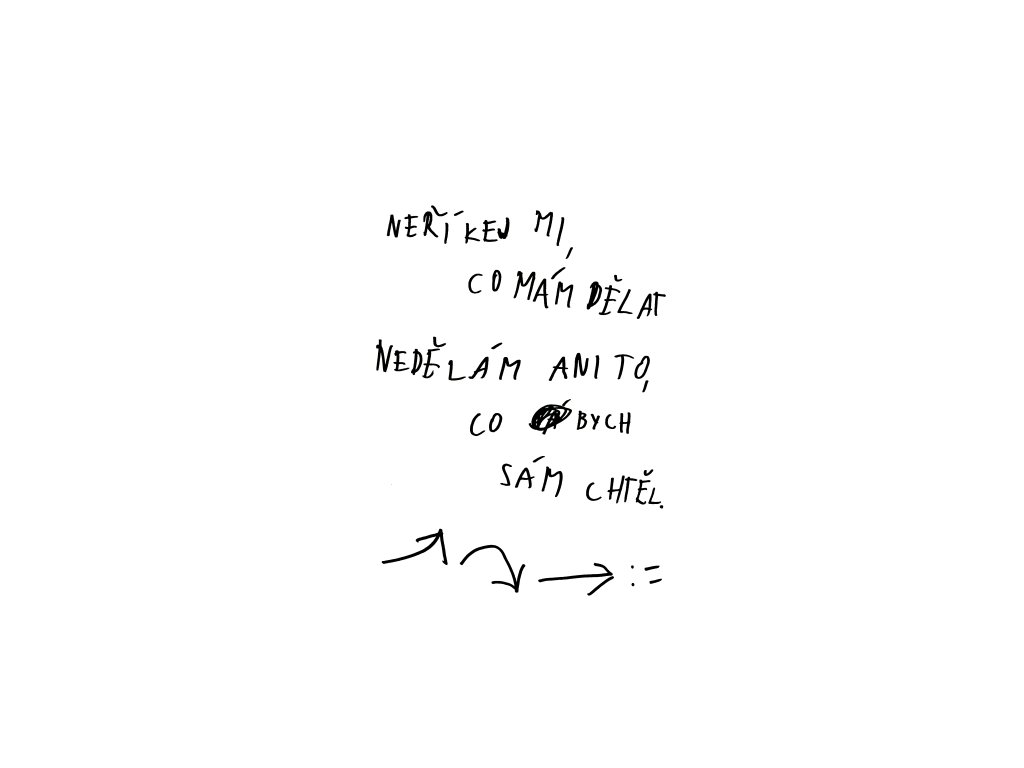 NEŘÍKEJ MI,
CO MÁM DĚLAT
NEDĚLÁM ANI TO,
CO BYCH
SÁM CHTĚL.
:=